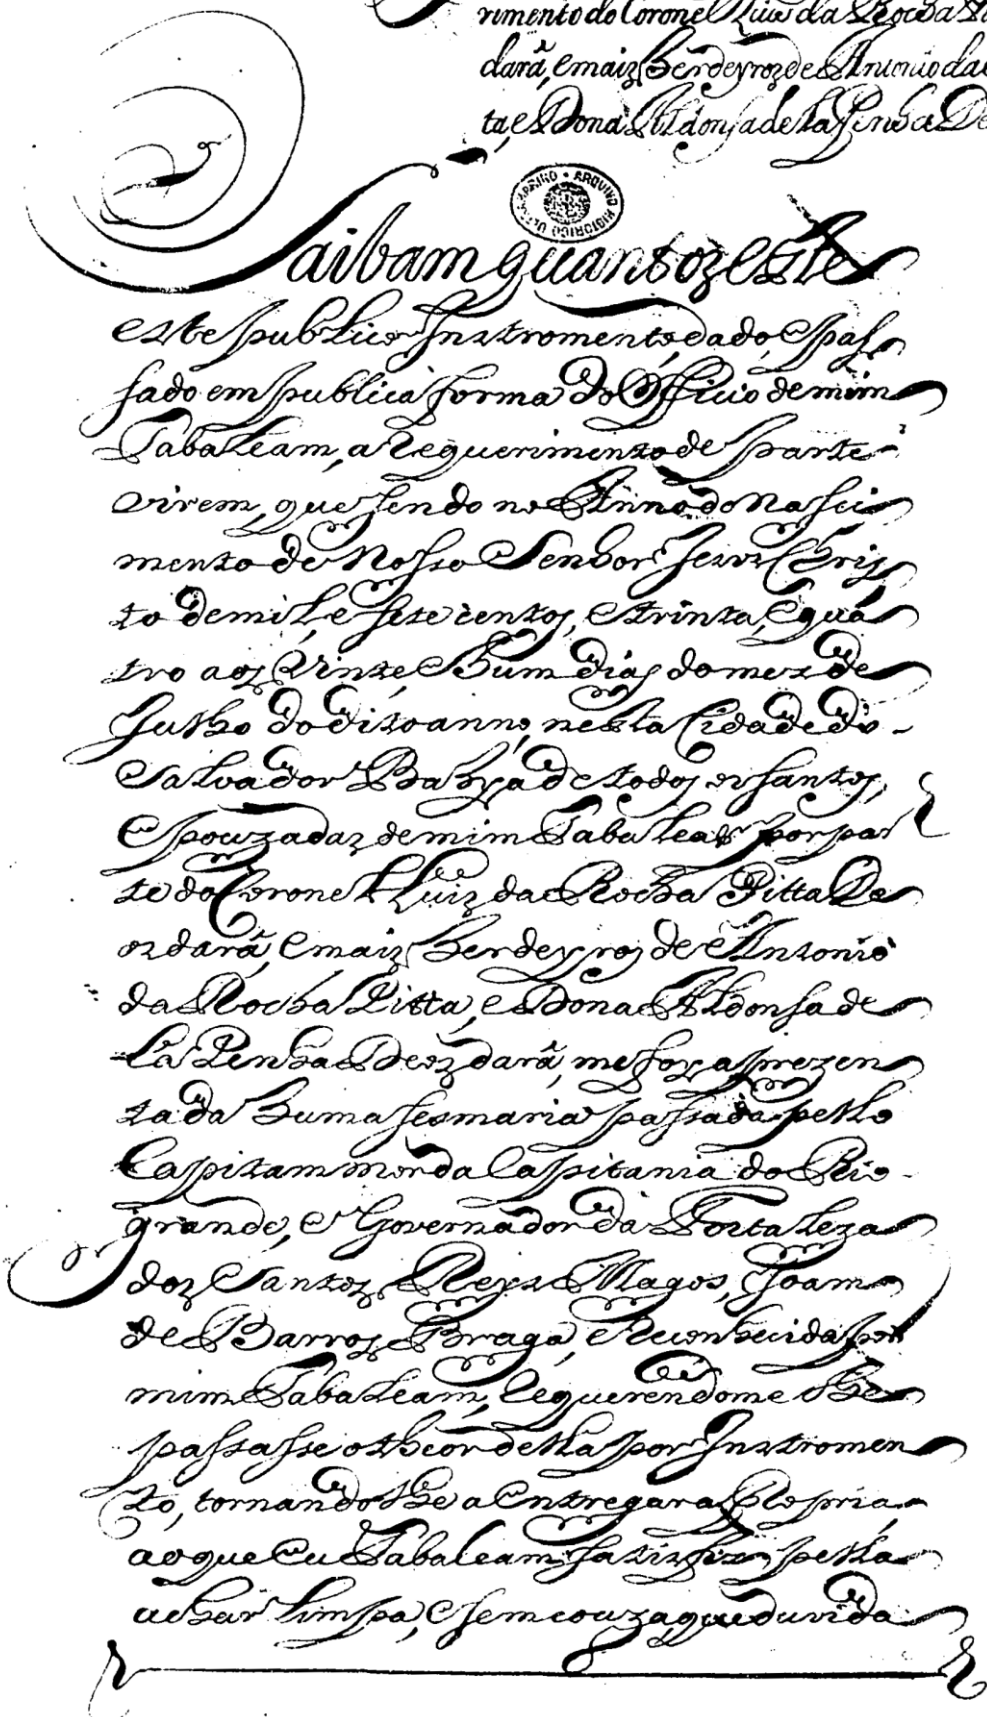 rimento do Coronel Luis da Rocha
dará, e maiz herdeyroz de Antonio da
ta, e Dona Aldonsa de la Penha De
ARQUIVO HISTORICO ULTRAMARINO
Saibam quantoz este
este publico Instromento, dado, e pas
sado em publica forma do Officio de mim
Tabaleam, a requerimento de parte
virem, que sendo no Anno do Nasci
mento de Nosso Senhor Jezus Chris
to de mil, e sete centos, e trinta, e qua
tro aos Vinte, e hum dias do mez de
Julho do dito anno, nesta Cidade do
Salvador Bahya de todos os santos,
e pouzadaz de mim Tabaleam por par
te do Coronel Luiz da Rocha Pitta De
ozdará, e maiz herdeyros de Antonio
da Rocha Pitta, e Dona Aldonsa de
La Penha Deozdará, me foy aprezen
tada huma sesmaria passada pello
Capitam mor da Capitania do Rio
grande, e Governador da Fortaleza
doz Santoz Reyz Magos, Joam
de Barroz Braga, e Reconhecida por
mim Tabaleam, requerendome lhe
passasse o theor della por Instromen
to, tornandolhe a Entregar a Propria
ao que Eu Tabaleam satisfiz pella
achar limpa, e sem couza, que duvida